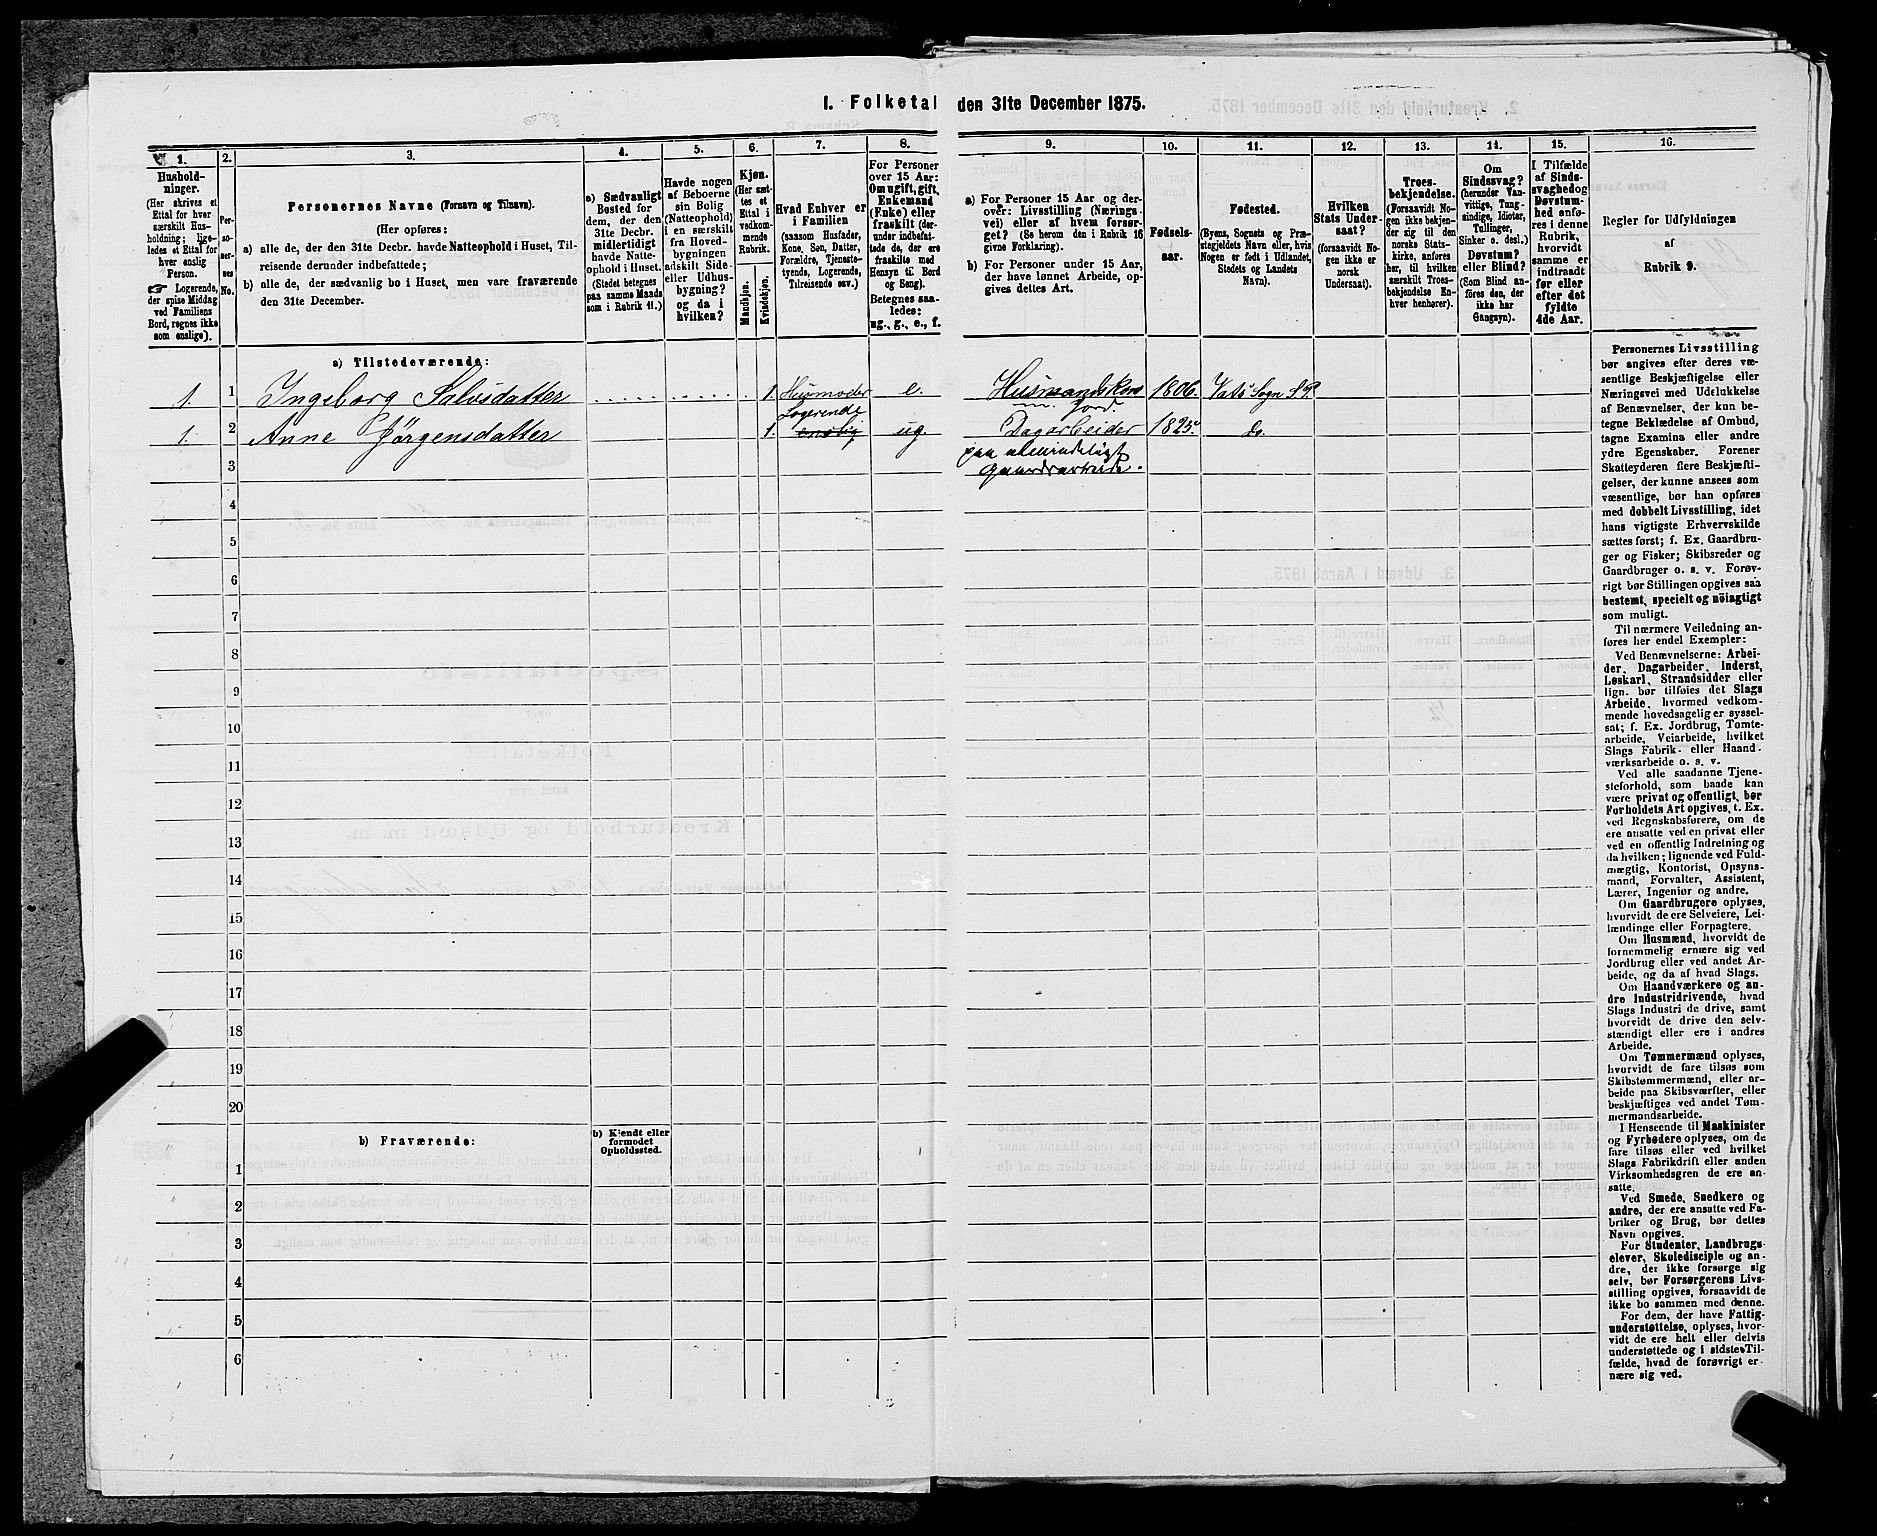 1. Folketal den 31te December 1875.
1. 2. 3. 4. 5. 6. 7. 8. 9. 10. 11. 12. 13. 14. 15. 16.
Hushold-
ninger.
(Her skrives et
Ettal for hver
særskilt Hus-
holdning; lige-
ledes et Ettal for
hver enslig
Person.
☞ Logerende,
der spise Middag
ved Familiens
Bord, regnes ikke
som enslige).
Per-
so-
ner-
nes
No.
Personernes Navne (Fornavn og Tilnavn).
(Her opføres:
a) alle de, der den 31te Decbr. havde Natteophold i Huset, Til-
reisende derunder indbefattede;
b) alle de, der sædvanlig bo i Huset, men vare fraværende
den 31te December.
a) Sædvanligt
Bosted for
dem, der den
31te Decbr.
midlertidigt
havde Natte-
ophold i Huset.
(Stedet betegnes
paa samme Maade
som i Rubrik 11.)
Havde nogen
af Beboerne
sin Bolig
(Natteophold)
i en særskilt
fra Hoved-
bygningen
adskilt Side-
eller Udhus-
bygning?
og da i
hvilken?
Kjøn.
(Her sæt-
tes et
Ettal i
vedkom-
mende
Rubrik.
Mandkjøn.
Kvindekjøn.
Hvad Enhver er
i Familien
(saasom Husfader,
Kone, Søn, Datter,
Forældre, Tjeneste-
tyende, Logerende,
Tilreisende osv.)
For Personer
over 15 Aar:
Om ugift, gift,
Enkemand
(Enke) eller
fraskilt (der-
under indbefat-
tede de, der ere
fraskilte med
Hensyn til Bord
og Seng).
Betegnes saa-
ledes:
ug., g., e., f.
a) For Personer 15 Aar og der-
over: Livsstilling (Nærings-
vei) eller af hvem forsør-
get? (Se herom den i Rubrik 16
givne Forklaring).
b) For Personer under 15 Aar,
der have lønnet Arbeide, op-
gives dettes Art.
Fødsels-
aar.
Fødested.
(Byens, Sognets og Præ-
stegjeldets Navn eller, hvis
Nogen er født i Udlandet,
Stedets og Landets
Navn).
Hvilken
Stats Under-
saat?
(forsaavidt No-
gen ikke er
norsk
Undersaat).
Troes-
bekjendelse.
(Forsaavidt No-
gen ikke bekjen-
der sig til den
norske Stats-
kirke, anføres
her, til hvilken
særskilt Troes-
bekjendelse En-
hver henhører).
Om
Sindssvag?
(herunder Van-
vittige, Tung-
sindige, Idioter,
Tullinger,
Sinker o. desl.)
Døvstum?
eller Blind?
(Som Blind an-
føres den, der
ikke har
Gangsyn).
I Tilfælde
af Sinds-
svaghed og
Døvstum-
hed anfø-
res i denne
Rubrik,
hvorvidt
samme er
indtraadt
før eller
efter det
fyldte
4de Aar.
Regler for Udfyldningen
af
Rubrik 9.
a) Tilstedeværende:
1. 1 Ingeborg Salvesdatter 1. Husmoder e. Husmandskone m. Jord. 1806. Vats Sogn S. P.
1. 2 Anne Jørgensdatter 1. Logerende enslig ug. Dagarbeider 1825. do.
paa almindeligt
Gaardsarbeide.
3
4
5
6
7
8
9
10
11
12
13
14
15
16
17
18
19
20
b) Fraværende:
b) Kjendt eller
formodet
Opholdssted.
1
2
3
4
5
6
Personernes Livsstilling
bør angives efter deres væ-
sentlige Beskjæftigelse eller
Næringsvei med Udelukkelse
af Benævnelser, der kun be-
tegne Beklædelse af Ombud,
tagne Examina eller andre
ydre Egenskaber. Forener
Skatteyderen flere Beskjæfti-
gelser, der kunne ansees som
væsentlige, bør han opføres
med dobbelt Livsstilling, idet
hans vigtigste Erhvervskilde
sættes først; f. Ex. Gaardbru-
ger og Fisker; Skibsreder og
Gaardbruger o. s. v. Forøv-
rigt bør Stillingen opgives saa
bestemt, specielt og nöiagtigt
som muligt.
Til nærmere Veiledning an-
føres her endel Exempler:
Ved Benævnelserne: Arbei-
der, Dagarbeider, Inderst,
Løskarl, Strandsidder eller
lign. bør tilføies det Slags
Arbeide, hvormed vedkom-
mende hovedsagelig er syssel-
sat; f. Ex. Jordbrug, Tomte-
arbeide, Veiarbeide, hvilket
Slags Fabrik- eller Haand-
værksarbeide o. s. v.
Ved alle saadanne Tjene-
steforhold, som baade kan
være privat og offentligt, bør
Forholdets Art opgives, t. Ex.
ved Regnskabsførere, om de
ere ansatte ved en privat eller
ved en offentlig Indretning og
da hvilken; lignende ved Fuld-
mægtig, Kontorist, Opsyns-
mand, Forvalter, Assistent,
Lærer, Ingeniør og andre.
Om Gaardbrugere oplyses,
hvorvidt de ere Selveiere, Lei-
lændinge eller Forpagtere.
Om Husmænd, hvorvidt de
fornemmelig ernære sig ved
Jordbrug eller ved andet Ar-
beide, og da af hvad Slags.
Om Haandværkere og an-
dre Industridrivende, hvad
Slags Industri de drive, samt
hvorvidt de drive den selv-
stændigt eller ere i andres
Arbeide.
Om Tømmermænd oplyses,
hvorvidt de fare tilsøs som
Skibstømmermænd, eller ar-
beide paa Skibsværfter, eller
beskjæftiges ved andet Tøm-
mermandsarbeide.
I Henseende til Maskinister
og Fyrbødere oplyses, om de
fare tilsøs eller ved hvilket
Slags Fabrikdrift eller anden
Virksomhedsgren de ere an-
satte.
Ved Smede, Snedkere og
andre, der ere ansatte ved Fa-
briker og Brug, bør dettes
Navn opgives.
For Studenter, Landbrugs-
elever, Skoledisciple og an-
dre, der ikke forsørge sig
selv, bør Forsørgerens Livs-
stilling opgives, forsaavidt de
ikke bo sammen med denne.
For dem, der have Fattig-
understøttelse, oplyses, hvor-
vidt de ere helt eller delvis
understøttede og i sidste Til-
fælde, hvad de forøvrigt er-
nære sig ved.